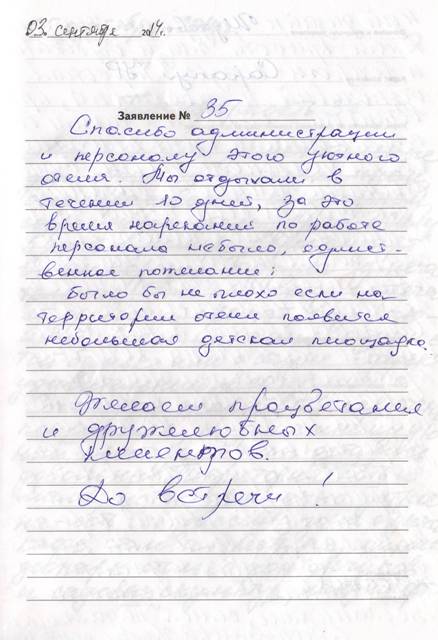 03. сентября 2014г.
Заявление № 35
Спасибо администрации
и персоналу этого уютного
отеля. Мы отдыхали в
течении 10 дней, за это
время нареканий по работе
персонала небыло, единст-
венное пожелание:
было бы не плохо если на
территории отеля появится
небольшая детская площадка.
Желаем процветания
и дружелюбных
клиентов.
До встречи!